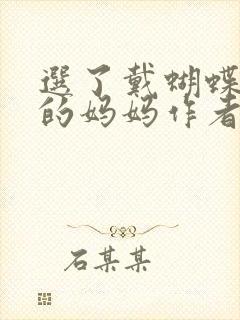 選了戴蝴蝶
的妈妈作者
石某某